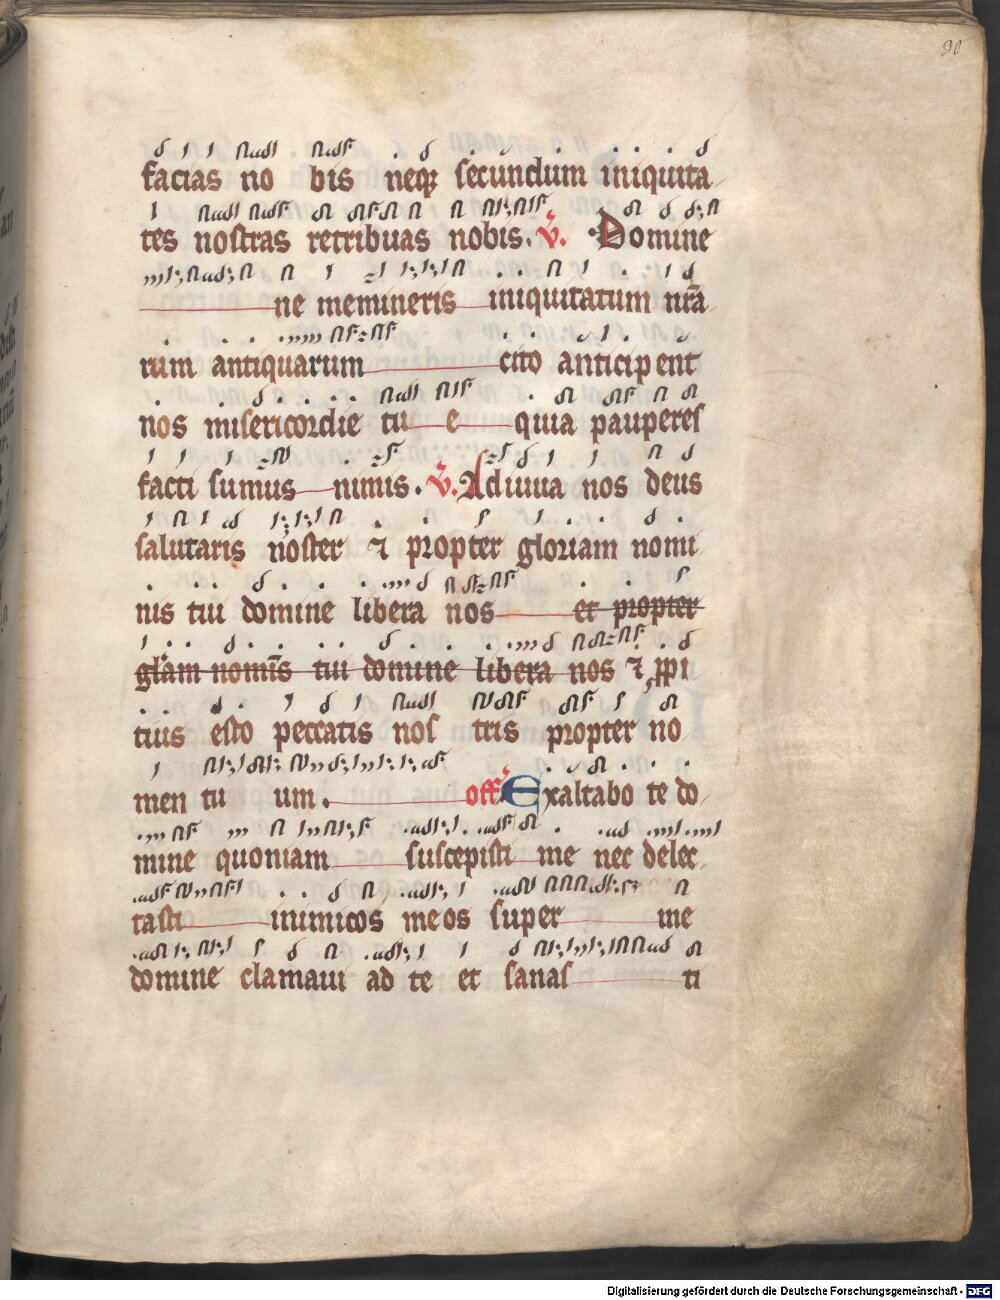 90
facias no bis neqꝫ secundum iniquita
tes nostras retribuas nobis. v̄. Domine
ne memineris iniquitatum nr̄a
rum antiquarum cito anticipent
nos misericordie tu e quia pauperes
facti sumus nimis. v̄. Adiuua nos deus
salutaris noster ⁊ propter gloriam nomi
nis tui domine libera nos et propter
gl̄am nom̄is tui domine libera nos ⁊ ꝓpi
tius esto peccatis nos tris propter no
men tu um. off̄ Exaltabo te do
mine quoniam suscepisti me nec delec
tasti inimicos meos super me
domine clamaui ad te et sanas ti
Digitalisierung gefördert durch die Deutsche Forschungsgemeinschaft - DFG